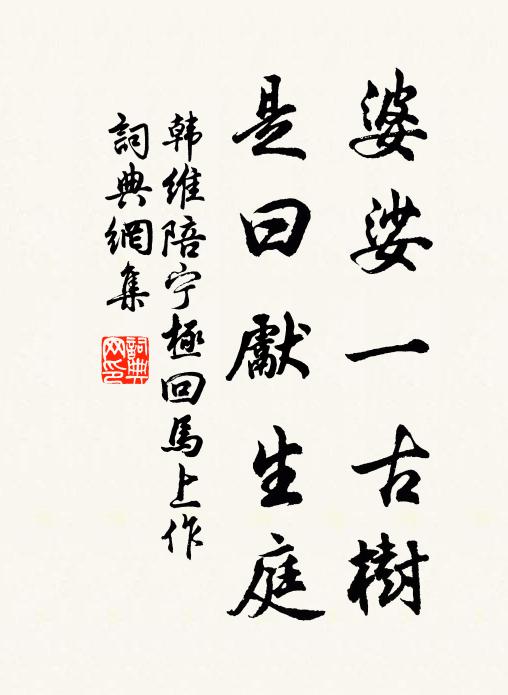 婆娑一古樹
是曰獻生庭
韩維陪宁極回馬上作
詞典網集
詞典網印